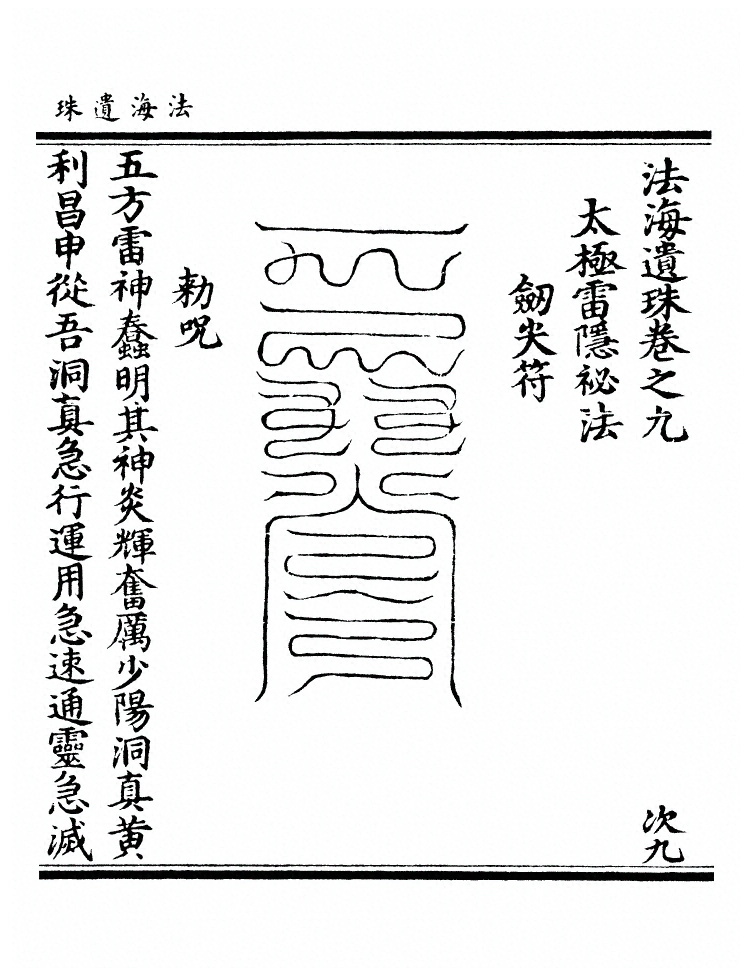 法海遺珠
法海遺珠卷之九
次九
太極雷隱祕法
劒尖符
勑呪
五方雷神蠢明其神炎輝奮厲少陽洞真黄
利昌申從吾洞真急行運用急速通靈急滅